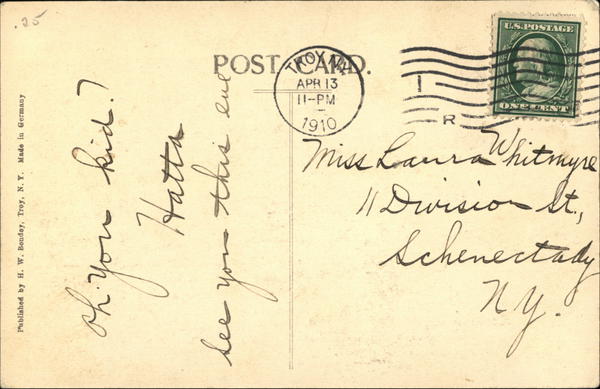 .25
POST CARD.
TROY N.Y.
APR 13
11-PM
1910
1
R
U.S. POSTAGE
ONE CENT
Oh you kid.?
Hatta
see you this eve
Miss Laura Whitmyre
11 Division St.,
Schenectady
N.Y.
Published by H. W. Boudey, Troy, N. Y. Made in Germany